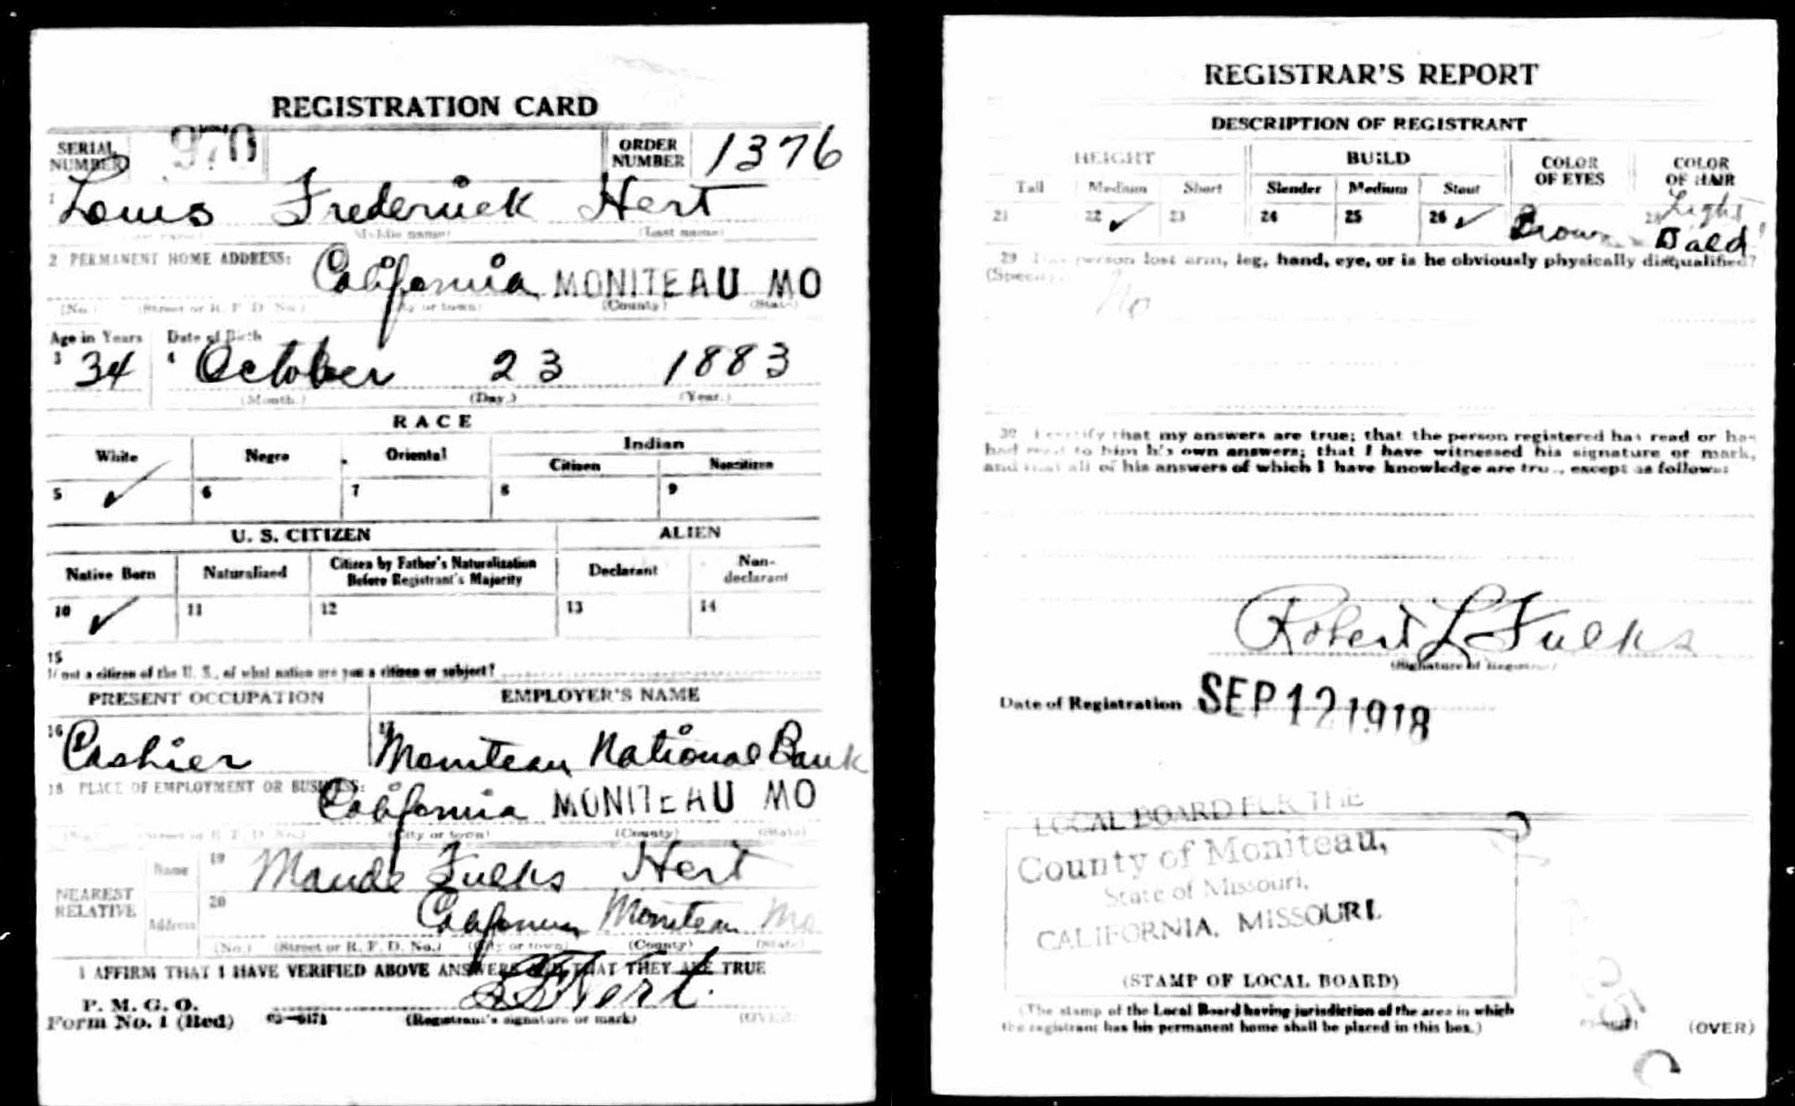 REGISTRATION CARD
SERIAL NUMBER 970 ORDER NUMBER 1376
1 Louis Frederick Hert
(Middle name) (Last name)
2 PERMANENT HOME ADDRESS:
California MONITEAU MO
(No.) (Street or R. F. D. No.) (City or town) (County) (State)
Age in Years Date of Birth
3 34 4 October 23 1883
(Month.) (Day.) (Year.)
RACE
White Negro Oriental Indian
Citizen Noncitizen
5 ✓ 6 7 8 9
U. S. CITIZEN ALIEN
Native Born Naturalized Citizen by Father's Naturalization Before Registrant's Majority Declarant Non-declarant
10 ✓ 11 12 13 14
15
If not a citizen of the U. S., of what nation are you a citizen or subject?
PRESENT OCCUPATION EMPLOYER'S NAME
16 Cashier 17 Moniteau National Bank
18 PLACE OF EMPLOYMENT OR BUSINESS:
California MONITEAU MO
(No.) (Street or R. F. D. No.) (City or town) (County) (State)
NEAREST RELATIVE
Name 19 Maude Fulks Hert
Address 20 California Moniteau Mo
(No.) (Street or R. F. D. No.) (City or town) (County) (State)
I AFFIRM THAT I HAVE VERIFIED ABOVE ANSWERS AND THAT THEY ARE TRUE
P. M. G. O.
Form No. 1 (Red) L F Hert.
(Registrant's signature or mark) (OVER)
REGISTRAR'S REPORT
DESCRIPTION OF REGISTRANT
HEIGHT BUILD COLOR OF EYES COLOR OF HAIR
Tall Medium Short Slender Medium Stout
21 22 ✓ 23 24 25 26 ✓ Brown 28 Light Bald
29 Has person lost arm, leg, hand, eye, or is he obviously physically disqualified?
(Specify.)
No
30 I certify that my answers are true; that the person registered has read or has
had read to him his own answers; that I have witnessed his signature or mark,
and that all of his answers of which I have knowledge are true, except as follows:
Robert L Fulks
(Signature of Registrar)
Date of Registration SEP 12 1918
LOCAL BOARD FOR THE
County of Moniteau,
State of Missouri,
CALIFORNIA, MISSOURI.
(STAMP OF LOCAL BOARD)
(The stamp of the Local Board having jurisdiction of the area in which
the registrant has his permanent home shall be placed in this box.)
(OVER)